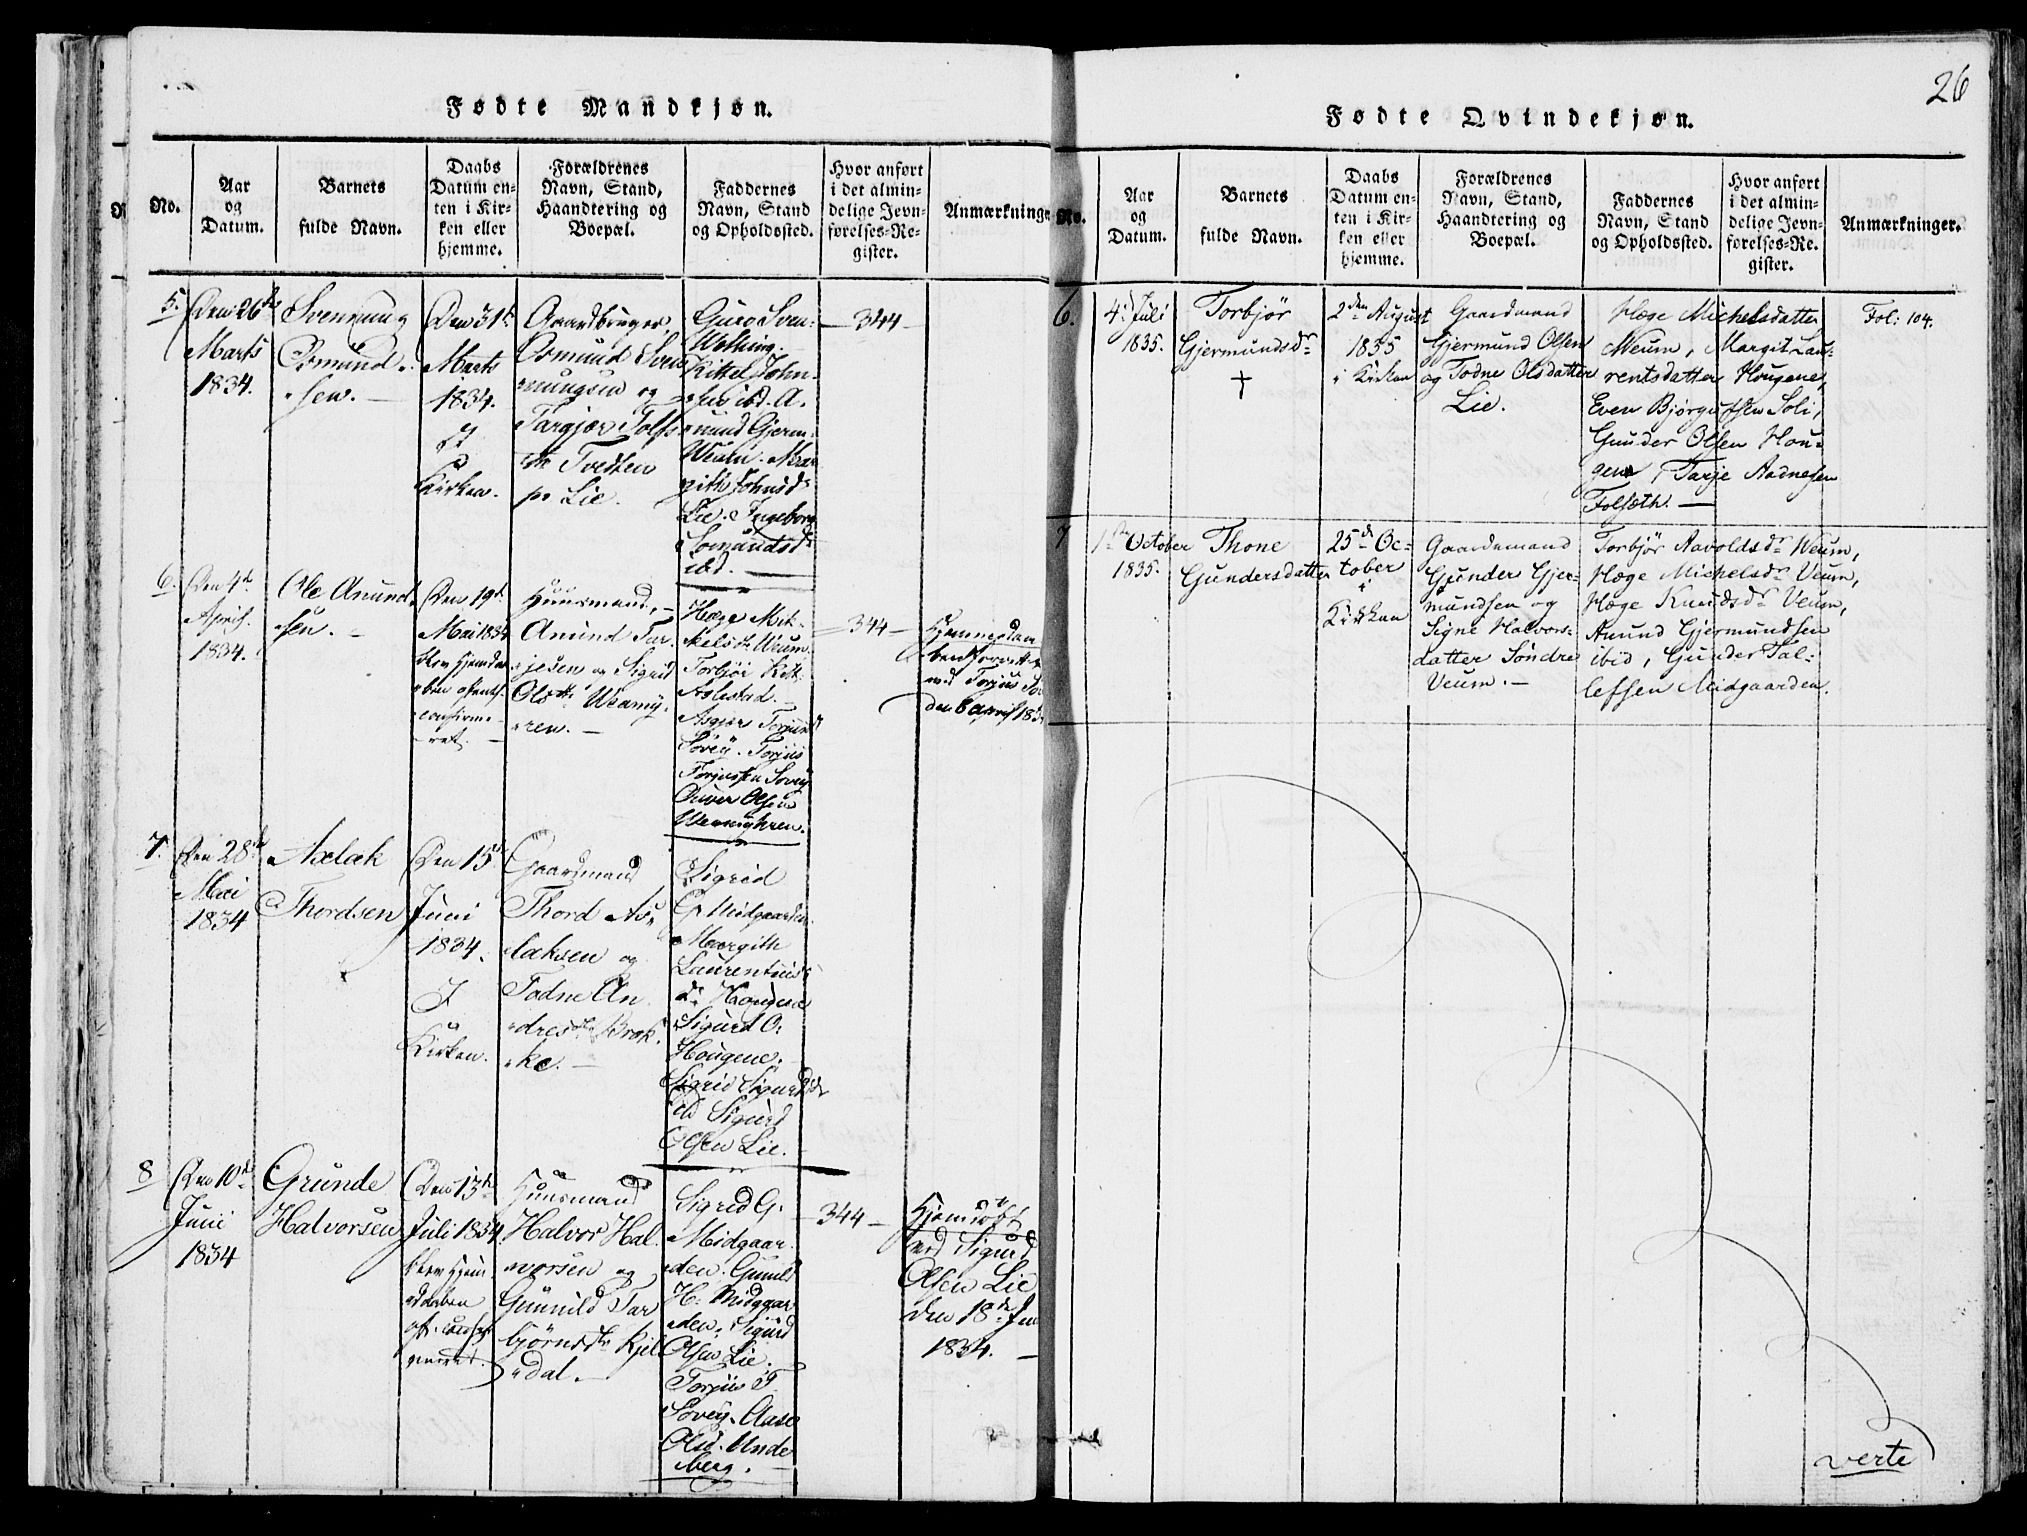 26
Fødte Mandkjøn.
No.
Aar
og
Datum.
Barnets
fulde Navn.
Daabs
Datum en-
ten i Kir-
ken eller
hjemme.
Forældrenes
Navn, Stand,
Haandtering og
Boepæl.
Faddernes
Navn, Stand
og Opholdssted.
Hvor anført
i det almin-
delige Jevn-
førelses-Re-
gister.
Anmærkninge
5.
Den 26de
Marts
1834.
Svennung
Osmund-
sen.
Den 31te
Marts
1834.
I
Kirken.
Gaardbruger
Osmund Sven
nungsen og
Targjær Tolfs
dtr Tvedten
pr Lie.
Guro Sven-
Kittel John-
sen ibd. A-
mund Gjerm.
Weum. Mar
gith Johnsd
Lie. Ingeborg
Osmundsd
ibd.
344
6.
Den 4de
April
1834.
Ole Anund-
sen.
Den 19de
Mai 1834
blev hjemdaa-
ben ofentl.
confirme-
ret.
Huusmand
Anund Tar-
jesen og Sigrid
Olsdtr Weamy-
ren.
Hæge Mik-
kelsdr Weum.
Torbjør Kitt.
Asgier Torjusd
Sovey. Torjus
Torjussen Sovey
Oliver Olsen
Weamyhren.
344
Hjemmedaa-
ben forrettet
ved Torjus So
den 6 April 183
7.
Den 28de
Mai
1834
Aslak
Thordsen
Den 15de
Juni
1834.
I
Kirken.
Gaardmand
Thord As-
laksen og
Todne An-
dresdtr Brok-
ke.
Sigrid
G. Midgaarden.
Margith
Laurentius
dr Hougene
Sigurd O.
Hougene.
Sigrid Sigurdsdr
ibd Sigurd
Olsen Lie.
8
Den 10de
Juni
1834
Grunde
Halvorsen
Den 13de
Juli 1834
blev hjem-
daaben
oft. confir-
meret.
Huusmand
Halvor Hal-
vorsen og
Gunnild Tar
bjørnsdtr Kjil
dal.
Sigrid G.
Midgaar-
den. Gunild
H. Midgaar
den. Sigurd
Olsen Lie.
Torjus T
Sovey. Aase
Olsd. Unde
berg.
344
Hjemdøbt
ved Sigurd
Olsen Lie
den 18de Jun
1834.
Fødte Qvindekjøn.
No.
Aar
og
Datum.
Barnets
fulde Navn.
Daabs
Datum en-
ten i Kir-
ken eller
hjemme.
Forældrenes
Navn, Stand,
Haandtering og
Boepæl.
Faddernes
Navn, Stand
og Opholdssted.
Hvor anført
i det almin-
delige Jevn-
førelses-Re-
gister.
Anmærkninger.
6.
4de Juli
1835.
Torbjør
Gjermundsdr
†
2den August
1835
i Kirken
Gaardmand
Gjermund Olsen
og Todne Olsdatter
Lie.
Hæge Michelsdatter
Weum, Margit Lau-
rentsdatter Hougene,
Even Bjørgufsen Soli,
Gunder Olsen Hou-
gene, Tarje Aadnesen
Folseth.
Fol: 104.
7
1ste October
1835.
Thone
Gundersdatter
25de Oc-
tober
i
Kirken
Gaardemand
Gunder Gjer-
mundsen og
Signe Halvors-
datter Søndre
Veum.
Torbjør Aavoldsdr Weum,
Hæge Michelsdr Veum,
Hæge Knudsdr Veum,
Anund Gjermundsen
ibid, Gunder Tal-
lefsen Midgaarden.
verte